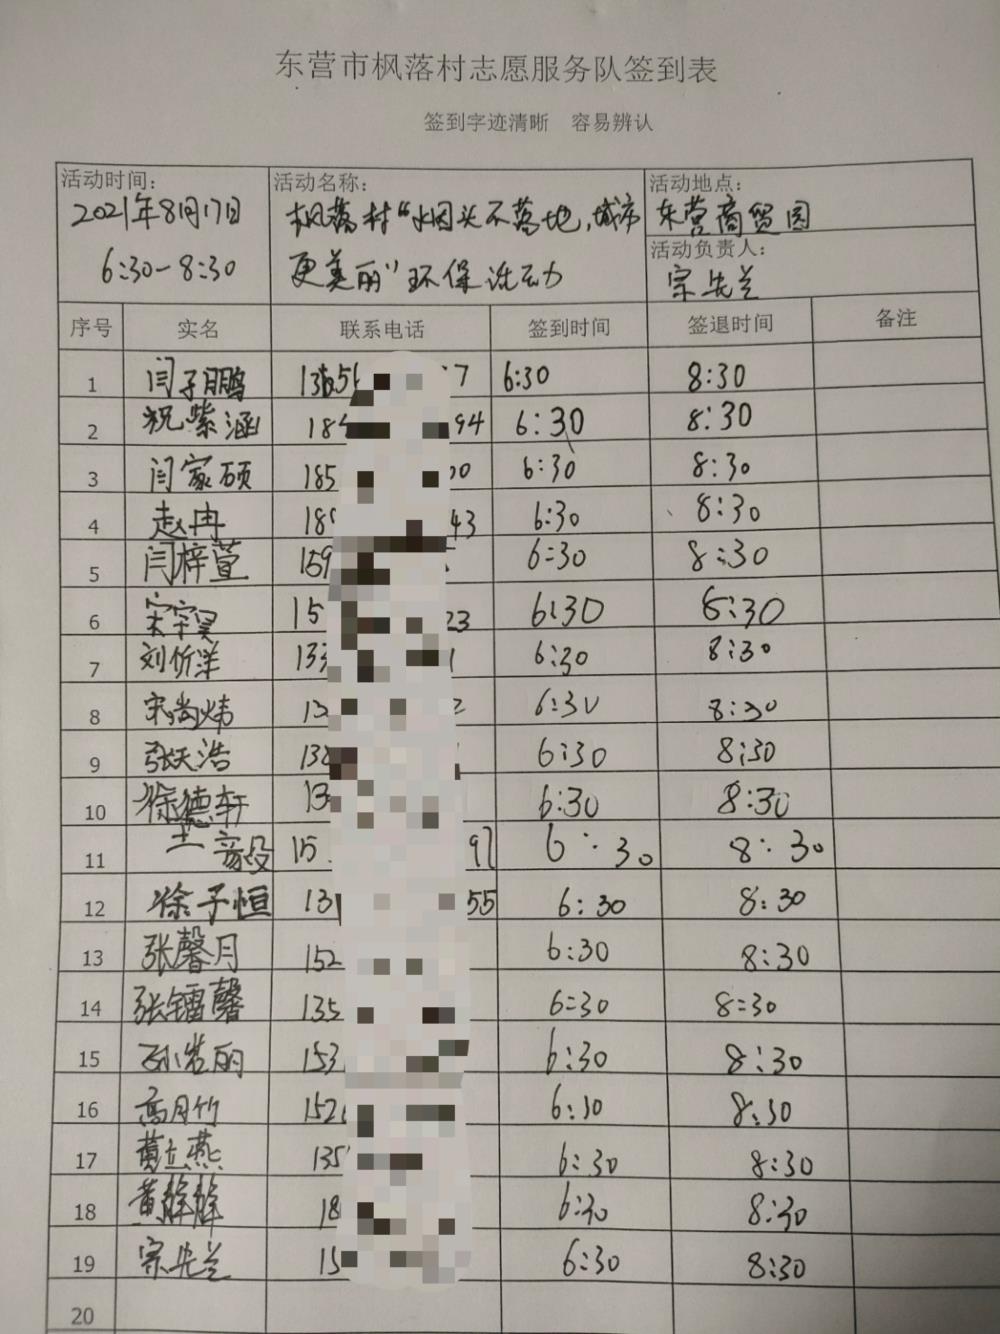 东营市枫落村志愿服务队签到表
签到字迹清晰 容易辨认
活动时间:
2021年8月17日
6:30-8:30
活动名称:
枫落村“烟头不落地,城市
更美丽”环保活动
活动地点:
东营商贸园
活动负责人:
宗先兰
序号 实名 联系电话 签到时间 签退时间 备注
1 闫子鹏 7 6:30 8:30
2 祝紫涵 18 94 6:30 8:30
3 闫家硕 185 00 6:30 8:30
4 赵冉 18 43 6:30 8:30
5 闫梓萱 159 6:30 8:30
6 宋宇昊 15 23 6:30 8:30
7 刘忻洋 133 1 6:30 8:30
8 宋尚炜 13 2 6:30 8:30
9 张天浩 138 6:30 8:30
10 徐德轩 13 6:30 8:30
11 15 97 6:30 8:30
12 徐子恒 13 55 6:30 8:30
13 张馨月 152 6:30 8:30
14 张镭馨 135 6=30 8=30
15 153 6:30 8:30
16 高月竹 152 6:30 8:30
17 黄立燕 135 6:30 8:30
18 18 6:30 8:30
19 宗先兰 15 6:30 8:30
20